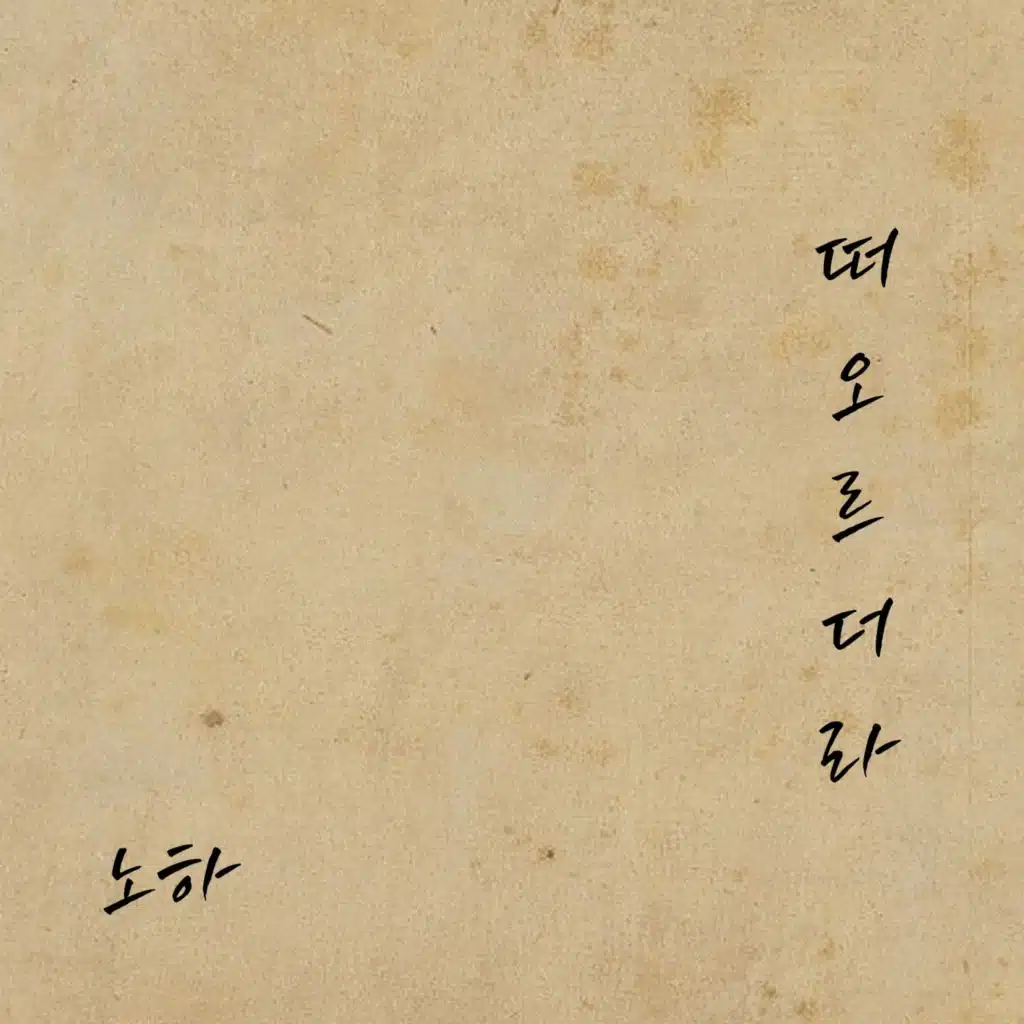 떠오르더라
노하